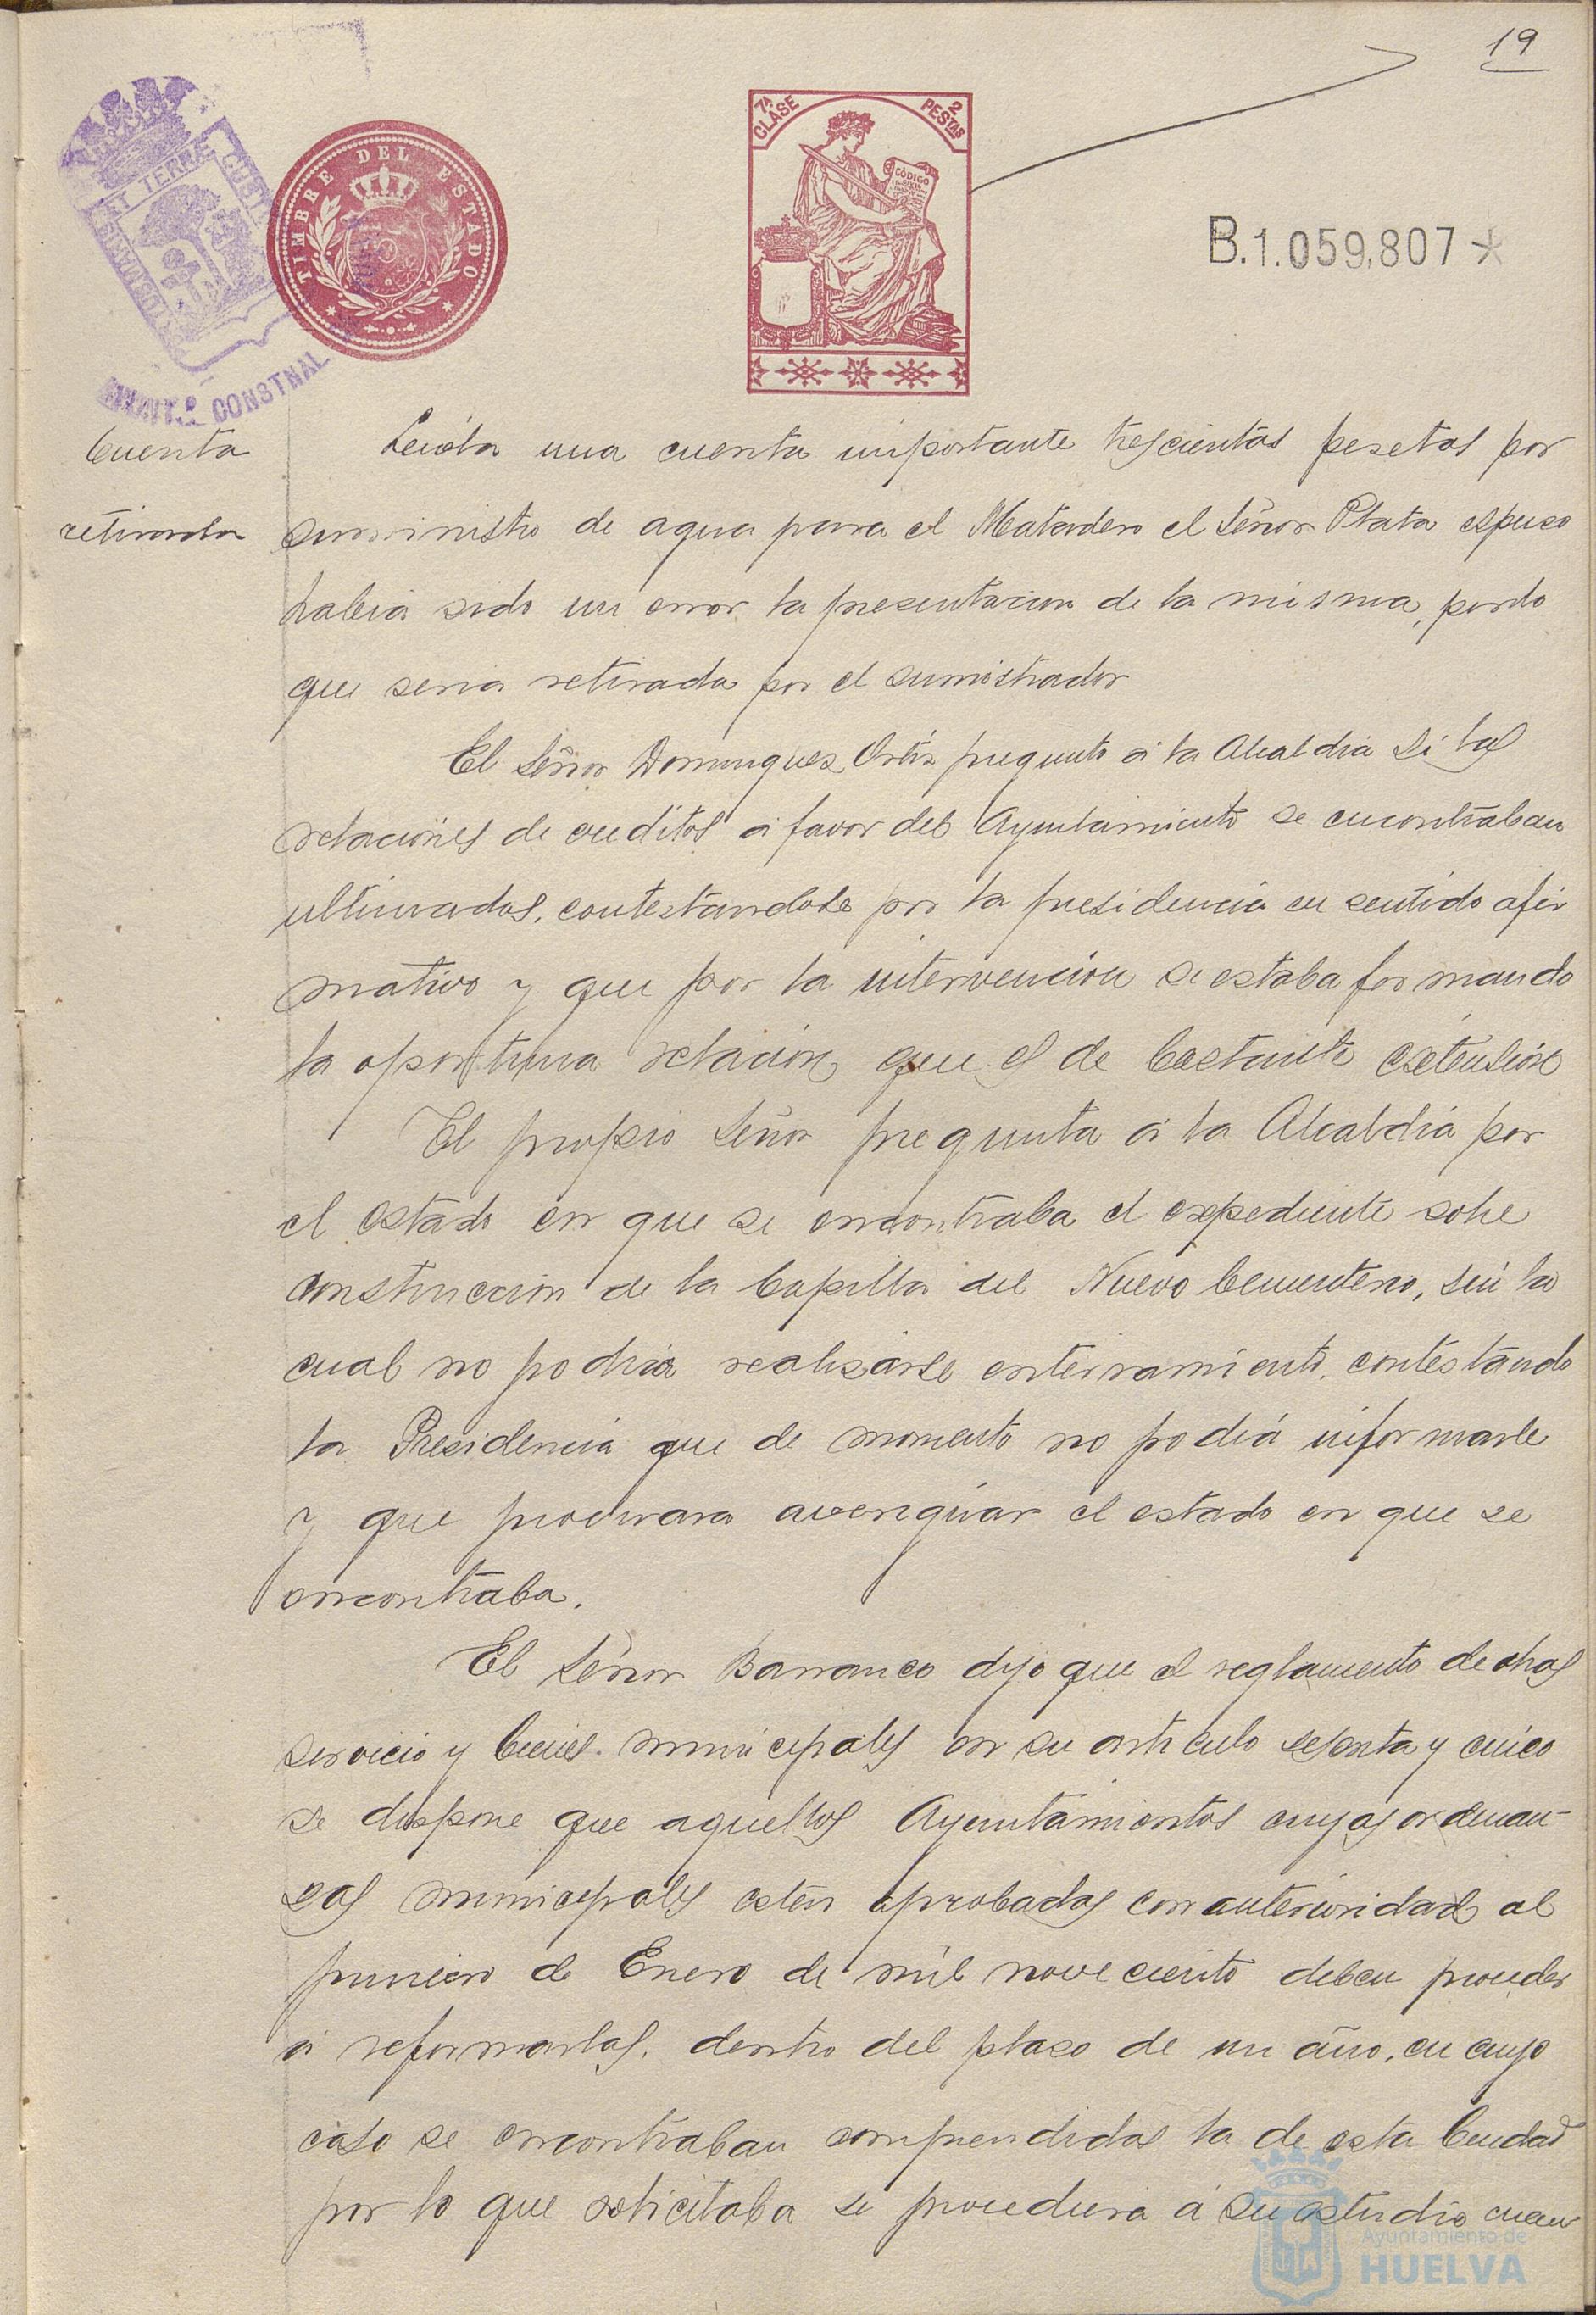 19
7ª CLASE
2 PESTAS
CÓDIGO
TIMBRE DEL ESTADO
ET TERRÆ
CONSTNAL
B.1.059,807*
Cuenta
retirada
Leida una cuenta importante trescientas pesetas por
suministro de agua para el Matadero el Señor Plata espuso
habia sido un error la presentacion de la misma, por lo
que seria retirada por el sumistrador
El Señor Dominguez Ortiz pregunto á la Alcaldia si las
relaciones de creditos á favor del Ayuntamiento se encontraban
ultimadas, contestandole por la presidencia en sentido afir
mativo y que por la intervencion se estaba formando
la oportuna relacion que es de bastante extension
El propio Señor pregunta á la Alcaldia por
el estado en que se encontraba el expediente sobre
construccion de la Capilla del Nuevo Cementerio, sin la
cual no podria realizarse enterramiento, contestando
la Presidencia que de momento no podia informarle
y que procurara averiguar el estado en que se
encontraba.
El Señor Barranco dijo que el reglamento de obras
servicio y bienes municipales en su articulo sesenta y cinco
se dispone que aquellos Ayuntamientos cuyas ordenan-
zas municipales esten aprobadas con anterioridad al
primero de Enero de mil novecientos deben proceder
á reformarlas, dentro del plazo de un año, en cuyo
caso se encontraban comprendidas la de esta Ciudad
por lo que solicitaba se procediera á su estudio cuan
Ayuntamiento de
HUELVA